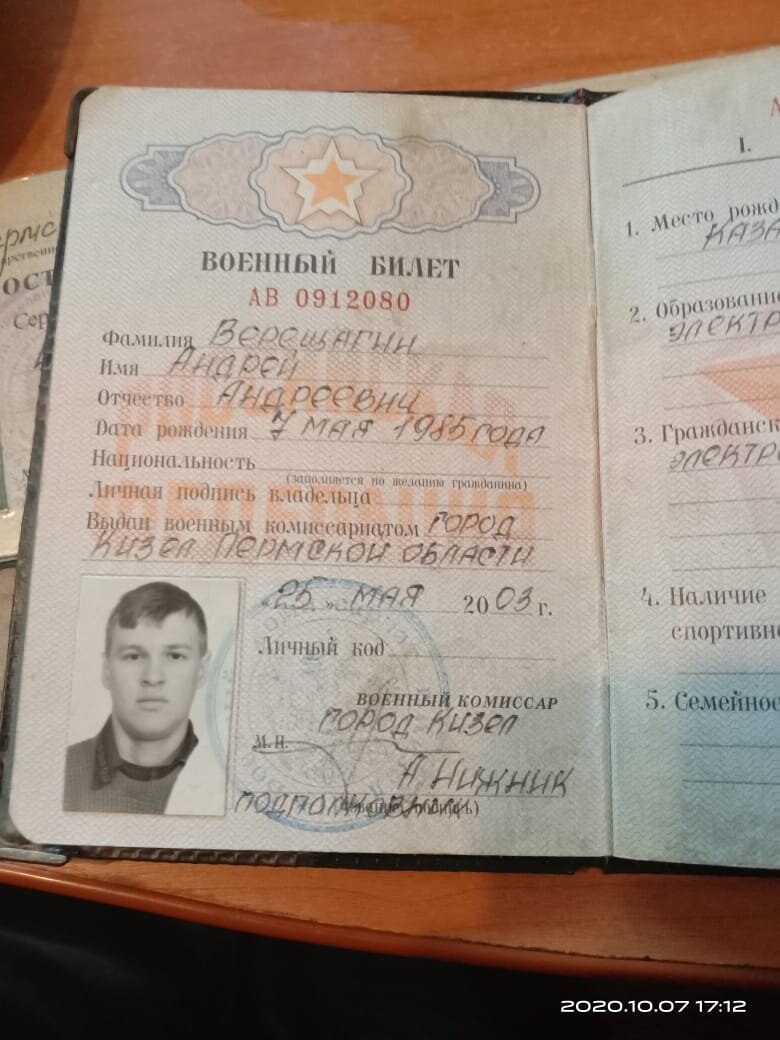 ВОЕННЫЙ БИЛЕТ
АВ 0912080
Фамилия Верещагин
Имя Андрей
Отчество Андреевич
Дата рождения 7 мая 1985 года
Национальность
(заполняется по желанию гражданина)
Личная подпись владельца
Выдан военным комиссариатом город
Кизел Пермской области
«25» мая 2003 г.
Личный код
ВОЕННЫЙ КОМИССАР
город Кизел
М.П.
А. Нижник
подполковник
I.
1. Место рожд
Каза
2. Образование
электр
3. Гражданск
электр
4. Наличие
спортивн
5. Семейнос
ОСТ
Сер
2020.10.07 17:12